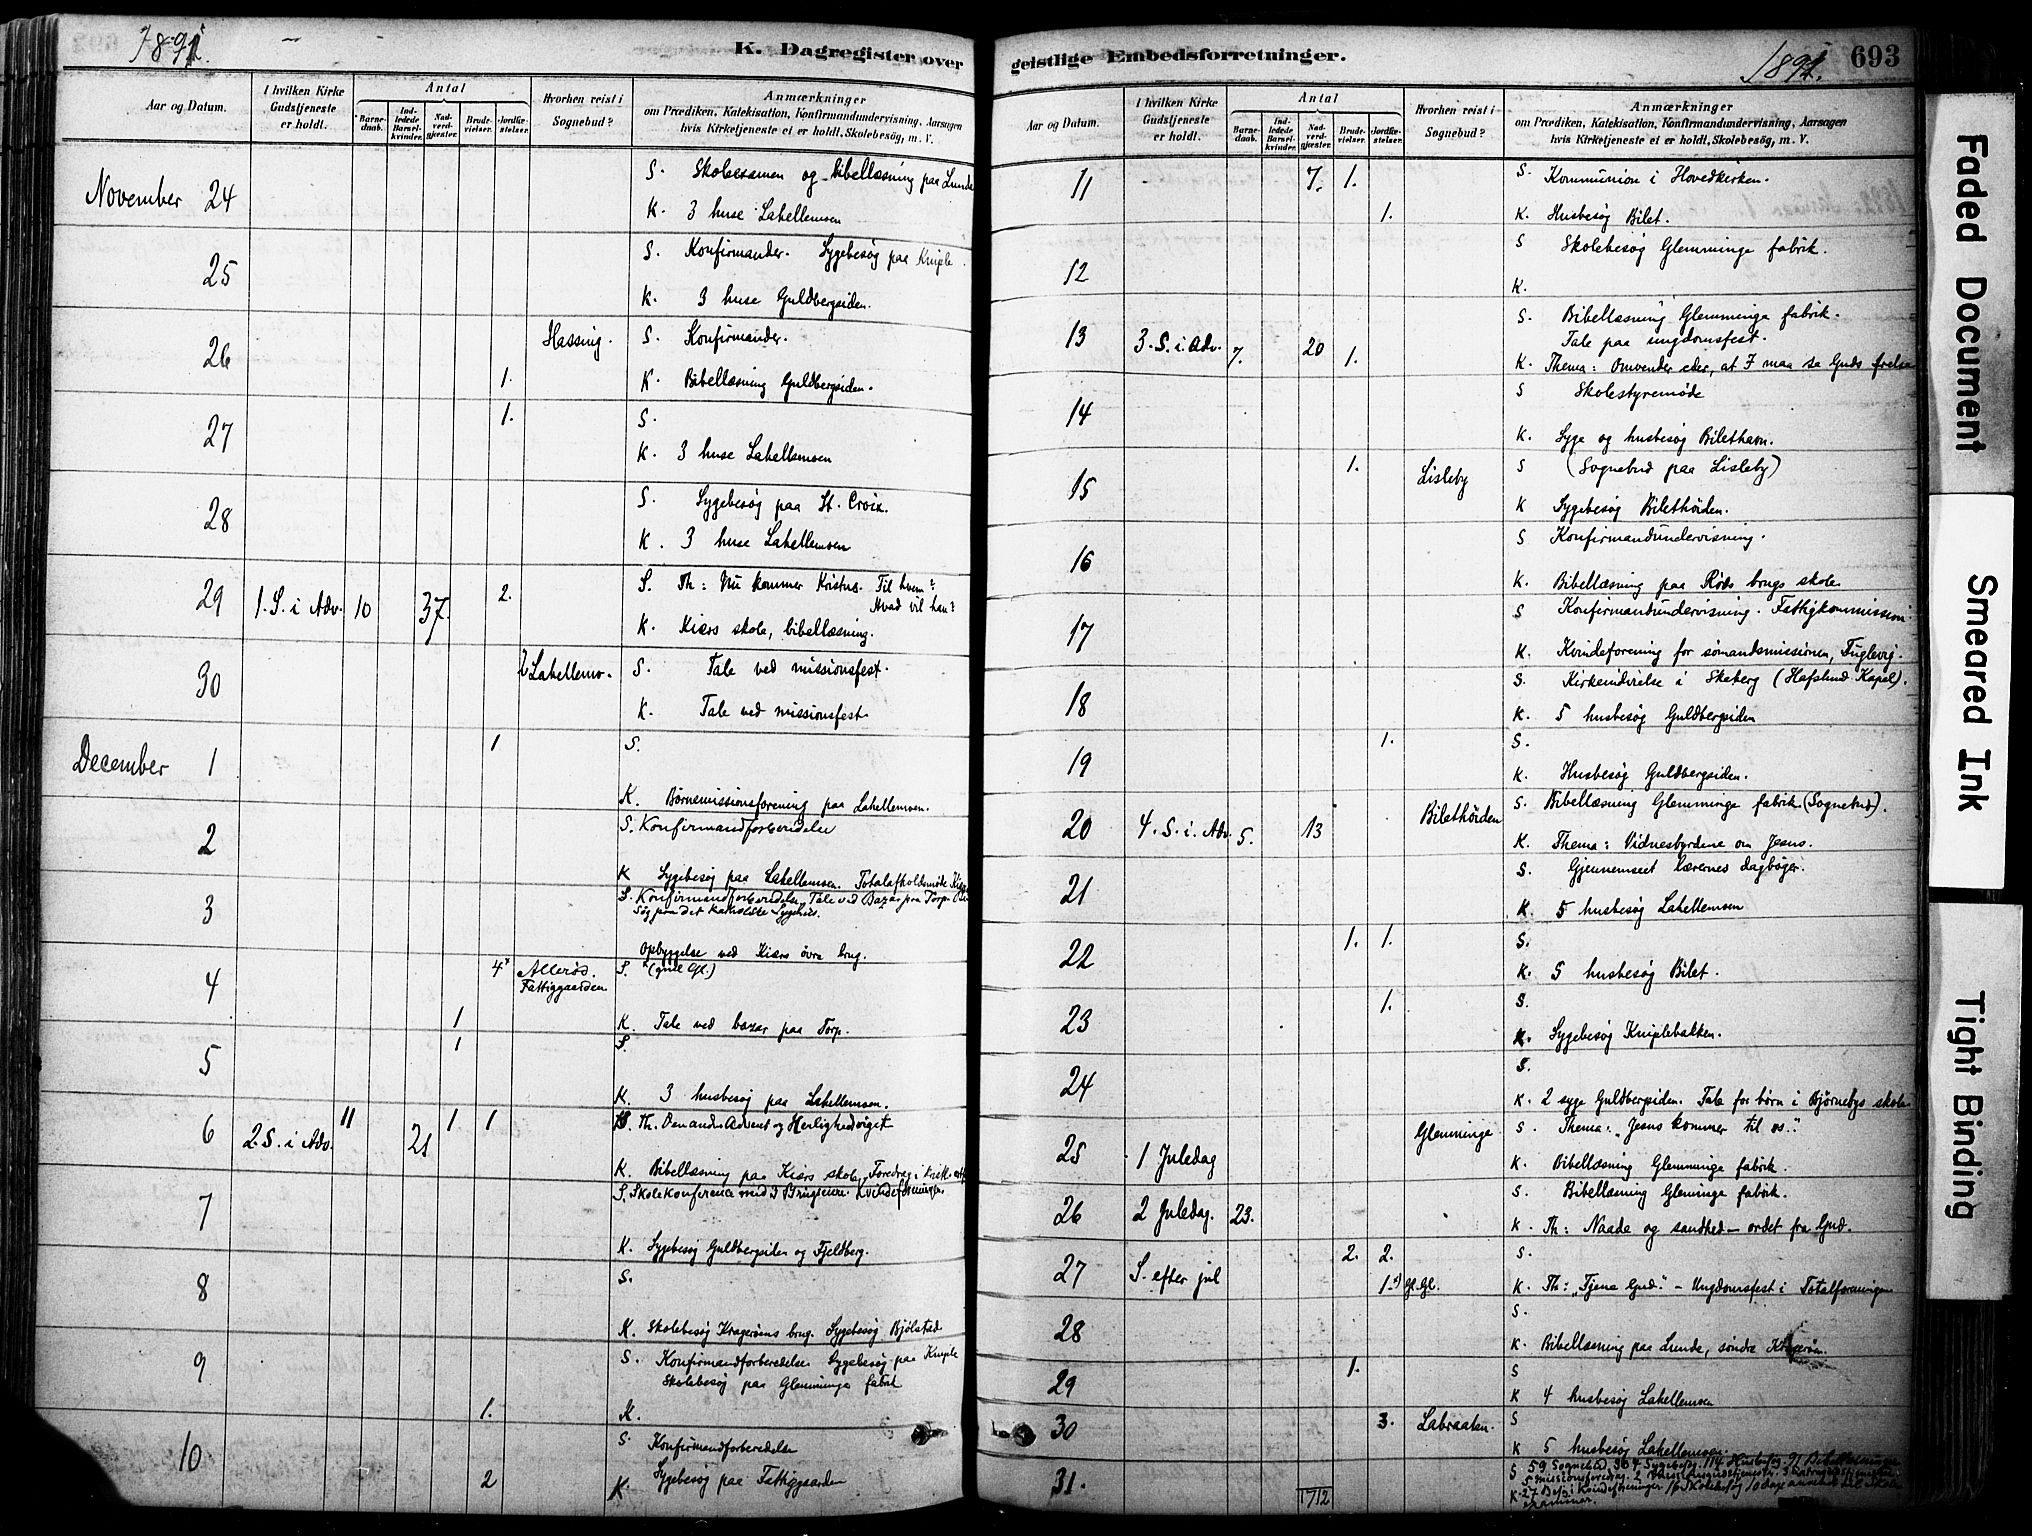 1891.
K. Dagregister over
Aar og Datum.
I hvilken Kirke Gudstjeneste er holdt.
Antal
Barne-daab.
Ind-ledede Barsel-kvinder.
Nad-verd-gjæster.
Brude-vielser.
Jordfæ-stelser.
Hvorhen reist i Sognebud?
Anmærkninger
om Prædiken, Katekisation, Konfirmandundervisning, Aarsagen
hvis Kirketjeneste ei er holdt, Skolebesög, m. V.
November 24
S. Skoleexamen og bibellæsning paa Lunde
K. 3 huse Lahellemoen
25
S. Konfirmander. Sygebesøg paa Kniple
K. 3 huse Guldbergsiden.
26 Hassing. S. Konfirmander.
1. K. Bibellæsning Guldbergsiden.
27 1. S.
K. 3 huse Lahellemoen
28
S. Sygebesøg paa St. Croix.
K. 3 huse Lahellemoen
29 1. S. i Adv. 10 37. 2. S. Th: Nu kommer Kristus. Til hvem?
Hvad vil han?
K. Kiærs skole, bibellæsning.
30 Lahellemo. S. Tale ved missionsfest.
K. Tale ved missionsfest
December 1 1 S.
K. Børnemissionsforening paa Lahellemoen.
2 S. Konfirmandforberedelse
K Sygebesøg paa Lahellemoen. Totalafholdsmøde
3 S. Konfirmandforberedelse, Tale ved Bazar paa Torp.
søg paa det katholske Sygehus.
Opbyggelse ved Kiærs øvre brug.
4 4 Allerød. Fattiggaarden S. (gml Gl.)
1 K. Tale ved bazar paa Torp.
5 1 S.
K. 3 husbesøg paa Lahellemoen.
6 2. S. i Adv. 11 21 1 1 S. Th. Den andre Advent og Herlighed
K. Bibellæsning paa Kiærs skole, Foredrag i
7 S. Skolekonferance med
K. Sygebesøg Guldbergsiden og Fjeldberg.
8 S.
K. Skolebesøg Kragerøens brug. Sygebesøg Bjølstad
9 S. Konfirmandforberedelse Sygebesøg paa Kniple
Skolebesøg paa Glemminge fabrik
1. K.
10 S. Konfirmandforberedelse
2 K. Sygebesøg paa Fattiggaarden
geistlige Embedsforretninger.
1891. 693
Aar og Datum.
I hvilken Kirke Gudstjeneste er holdt.
Antal
Barne-daab.
Ind-ledede Barsel-kvinder.
Nad-verd-gjæster.
Brude-vielser.
Jordfæ-stelser.
Hvorhen reist i Sognebud?
Anmærkninger
om Prædiken, Katekisation, Konfirmandundervisning, Aarsagen
hvis Kirketjeneste ei er holdt, Skolebesög, m. V.
11 7. 1. S. Kommunion i Hovedkirken.
1. K. Husbesøg Bilet.
12 S Skolebesøg Glemminge fabrik.
K.
13 3. S. i Adv. 7. 20 1. S. Bibellæsning Glemminge fabrik.
Tale paa ungdomsfest.
K. Thema: Omvender eder, at I maa se Guds frelse
14 S Skolestyremøde
K. Syge og husbesøg Bilethavn.
15 1. Lisleby S (Sognebud paa Lisleby)
K Sygebesøg Bilethøiden.
16 S Konfirmandundervisning.
K. Bibellæsning paa Røds brugs skole
17 S Konfirmandundervisning. Fattigkommission
K. Kvindeforening for sømandsmissionen, Fuglevig.
18 S. Kirkeindvielse i Skeberg (Hafslund Kapel).
K. 5 husbesøg Guldbergsiden
19 1. S.
K. Husbesøg Guldbergsiden.
20 4. S. i. Adv. 5. 13 Bilethöiden S. Bibellæsning Glemminge fabrik (Sognebud).
K. Thema: Vidnesbyrdene om Jesus.
21 S. Gjennemseet lærernes dagbøger.
K. 5 husbesøg Lahellemoen
22 1. 1. S.
K. 5 husbesøg Bilet.
23 1. S.
K. Sygebesøg Kniplebakken.
24 S.
K. 2 syge Guldbergsiden. Tale for børn i Bjørnebys skole
25 1 Juledag Glemminge S. Thema: „Jesus kommer til os.“
K. Bibellæsning Glemminge fabrik.
26 2 Juledag. 23. S. Bibellæsning Glemminge fabrik.
K. Th: Naade og sandhed – ordet fra Gud.
27 S. efter jul 2. 2. S.
1 Gl. Gl. K. Th: „Tjene Gud“ – Ungdomsfest i Totalforeningen
28 S.
K. Bibellæsning paa Lunde, søndre Kragerøen.
29 1. S
K 4 husbesøg Lahellemoen
30 3. Labraaten. S
K 5 husbesøg Lahellemoen.
31. 1712 S 59 Sognebud, 364 Sygebesøg. 114 Husbesøg. 91 Bibellæsninger
5 missionsforedrag. 2
K. 27 Besøg i Kvindeforeninger 16 Skolebesøg 10 dage
examiner.
Faded Document
Smeared Ink
Tight Binding